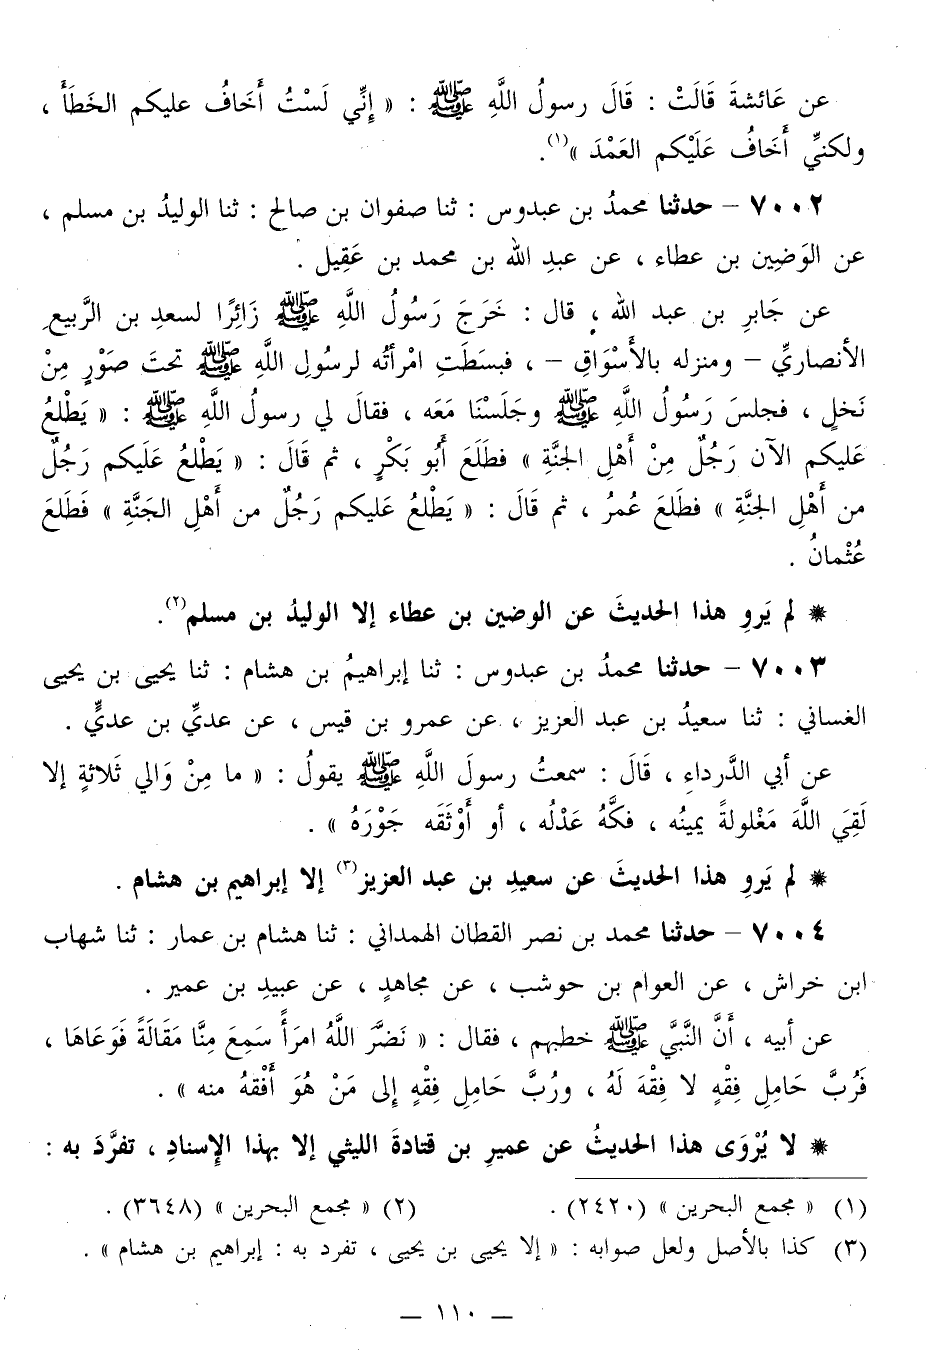 عن عَائشةَ قَالَتْ : قَالَ رسولُ اللَّهِ ﷺ : « إِنِّي لَسْتُ أَخَافُ عليكم الخَطَأَ ،
ولكنيِّ أَخَافُ عَلَيْكم العَمْدَ »(١).
٧٠٠٢ – حدثنا محمدُ بن عبدوس : ثنا صفوان بن صالح : ثنا الوليدُ بن مسلم ،
عن الوَضِين بن عطاء ، عن عبدِ الله بن محمد بن عَقِيل .
عن جَابرِ بن عبد الله ، قال : خَرَجَ رَسُولُ اللَّهِ ﷺ زَائِرًا لسعدِ بن الرَّبيعِ
الأنصاريِّ – ومنزله بالأَسْوَاقِ – ، فبسَطَتِ امْرأتُه لرسولِ اللَّهِ ﷺ تحتَ صَوْرٍ مِنْ
نَخلٍ ، فجلسَ رَسُولُ اللَّهِ ﷺ وجَلَسْنَا مَعَه ، فقالَ لي رسولُ اللَّهِ ﷺ : « يَطْلعُ
عَليكم الآن رَجُلٌ مِنْ أَهْلِ الجنَّةِ » فطَلَعَ أَبُو بَكْرٍ ، ثم قَالَ : « يَطْلعُ عَليكم رَجُلٌ
من أَهْلِ الجنَّةِ » فطَلَعَ عُمرُ ، ثم قَالَ : « يَطْلعُ عَليكم رَجُلٌ من أَهْلِ الجَنَّةِ » فَطَلعَ
عُثْمانُ .
* لم يَروِ هذا الحديثَ عن الوضين بن عطاء إلا الوليدُ بن مسلم(٢).
٧٠٠٣ – حدثنا محمدُ بن عبدوس : ثنا إبراهيمُ بن هشام : ثنا يحيى بن يحيى
الغساني : ثنا سعيدُ بن عبد العزيز ، عن عمرو بن قيس ، عن عديِّ بن عديٍّ .
عن أبي الدَّرداءِ ، قَالَ : سمعتُ رسولَ اللَّهِ ﷺ يقولُ : « ما مِنْ وَالي ثَلاثةٍ إلا
لَقِيَ اللَّهَ مَغْلولةً يمينُه ، فكَّهُ عَدْلُه ، أو أَوْثَقَه جَوْرَهُ » .
* لم يَروِ هذا الحديثَ عن سعيدِ بن عبد العزيز(٣) إلا إبراهيم بن هشام .
٧٠٠٤ – حدثنا محمد بن نصر القطان الهمداني : ثنا هشام بن عمار : ثنا شهاب
ابن خراش ، عن العوام بن حوشب ، عن مجاهدٍ ، عن عبيدِ بن عمير .
عن أبيه ، أَنَّ النَّبيَّ ﷺ خطبهم ، فقال : « نَضَّرَ اللَّهُ امرَأً سَمِعَ مِنَّا مَقَالَةً فَوَعَاهَا ،
فَرُبَّ حَاملِ فِقْهٍ لا فِقْهَ لَهُ ، ورُبَّ حَاملِ فِقْهٍ إلى مَنْ هُوَ أَفْقهُ منه » .
* لا يُرْوَى هذا الحديثُ عن عميرِ بن قتادةَ الليثي إلا بهذا الإسنادِ ، تفرَّدَ به :
(١) « مجمع البحرين » (٢٤٢٠) . (٢) « مجمع البحرين » (٣٦٤٨) .
(٣) كذا بالأصل ولعل صوابه : « إلا يحيى بن يحيى ، تفرد به : إبراهيم بن هشام » .
— ١١٠ —